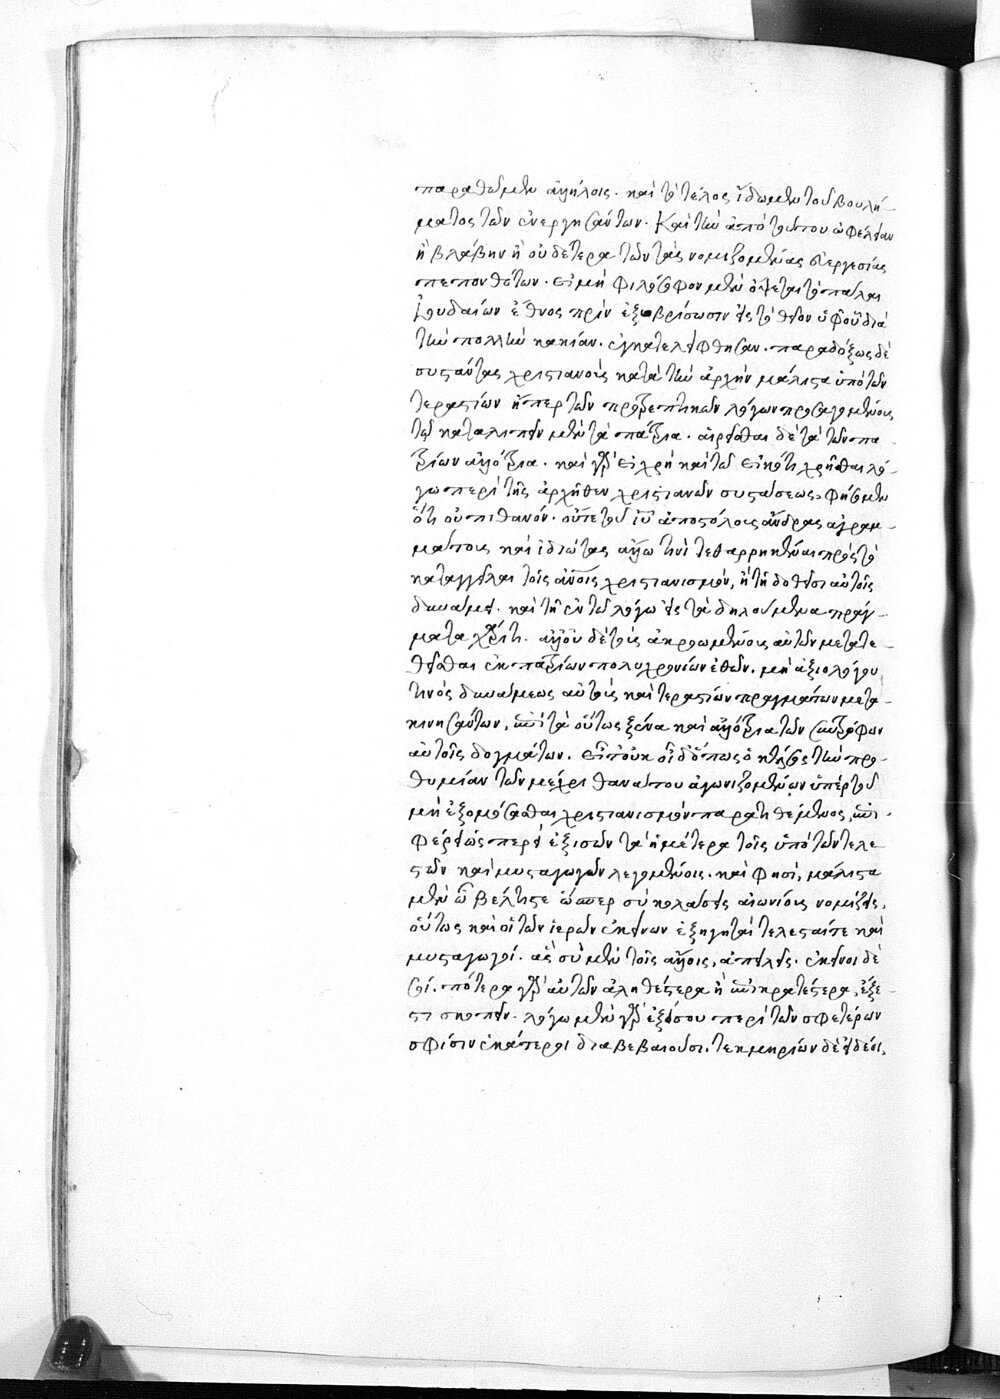 παραθῶμεν ἀλλήλοις. καὶ τὸ τέλος ἴδωμεν τοῦ βουλή-
ματος τῶν ἐνεργησάντων. καὶ τὴν ἀπὸ τούτου ὠφέλειαν
ἢ βλάβην ἢ οὐδέτερα τῶν τὰς νομιζομένας εὐεργεσίας
πεπονθότων. εἰ μὴ φιλόσοφον μὲν ὄψεται τὸ πάλαι
Ἰουδαίων ἔθνος πρὶν ἐξυβρίσωσιν εἰς τὸ θεῖον ὑφ' οὗ διὰ
τὴν πολλὴν κακίαν ἐγκατελείφθησαν. παραδόξως δὲ
συστάντας χριστιανοὺς κατὰ τὴν ἀρχὴν μάλιστα ὑπὸ τῶν
τεραστίων ἤπερ τῶν προτρεπτικῶν λόγων προσαγομένους
τῷ καταλιπεῖν μὲν τὰ πάτρια. αἱρεῖσθαι δὲ τὰ τῶν πα-
τρίων ἀλλότρια. καὶ γὰρ εἰ χρὴ καὶ τῷ εἰκότι χρῆσθαι λό-
γῳ περὶ τῆς ἀρχῆθεν χριστιανῶν συστάσεως, φήσομεν
ὅτι οὐ πιθανόν. οὔτε τοῦ ἰυ ἀποστόλους ἄνδρας ἀγραμ-
μάτους καὶ ἰδιώτας ἄλλῳ τινὶ τεθαρρηκέναι πρὸς τὸ
καταγγεῖλαι τοῖς ἀνοις χριστιανισμόν, ἢ τῇ δοθείσῃ αὐτοῖς
δυνάμει. καὶ τῇ ἐν τῷ λόγῳ εἰς τὰ δηλούμενα πράγ-
ματα χάριτι. ἀλλ' οὐδὲ τοὺς ἀκροωμένους αὐτῶν μετατε
θεῖσθαι ἐκ πατρίων πολυχρονίων ἐθῶν, μὴ ἀξιολόγου
τινὸς δυνάμεως αὐτοὺς καὶ τεραστίων πραγμάτων μετα-
κινησάντων, ἐπὶ τὰ οὕτως ξένα καὶ ἀλλότρια τῶν συντρόφων
αὐτοῖς δογμάτων. εἶτ' οὐκ οἶδ' ὅπως ὁ κέλσος τὴν προ-
θυμίαν τῶν μέχρι θανάτου ἀγωνιζομένων ὑπὲρ τοῦ
μὴ ἐξομόσασθαι χριστιανισμὸν παρατιθέμενος, ἐπι-
φέρει ὡσπερεὶ ἐξισῶν τὰ ἡμέτερα τοῖς ὑπὸ τῶν τελε
στῶν καὶ μυσταγωγῶν λεγομένοις. καὶ φησί, μάλιστα
μὲν ὦ βέλτιστε ὥσπερ σὺ κολάσεις αἰωνίους νομίζεις,
οὕτως καὶ οἱ τῶν ἱερῶν ἐκείνων ἐξηγηταὶ τελεσταί τε καὶ
μυσταγωγοί. ἃς σὺ μὲν τοῖς ἄλλοις, ἀπειλεῖς. ἐκεῖνοι δὲ
σοί. πότερα γὰρ αὐτῶν ἀληθέστερα ἢ ἐπικρατέστερα, ἔξε-
στι σκοπεῖν. λόγῳ μὲν γὰρ ἐξίσου περὶ τῶν σφετέρων
σφίσιν ἑκάτεροι διαβεβαιοῦσι. τεκμηρίων δὲ εἰ δέοι,